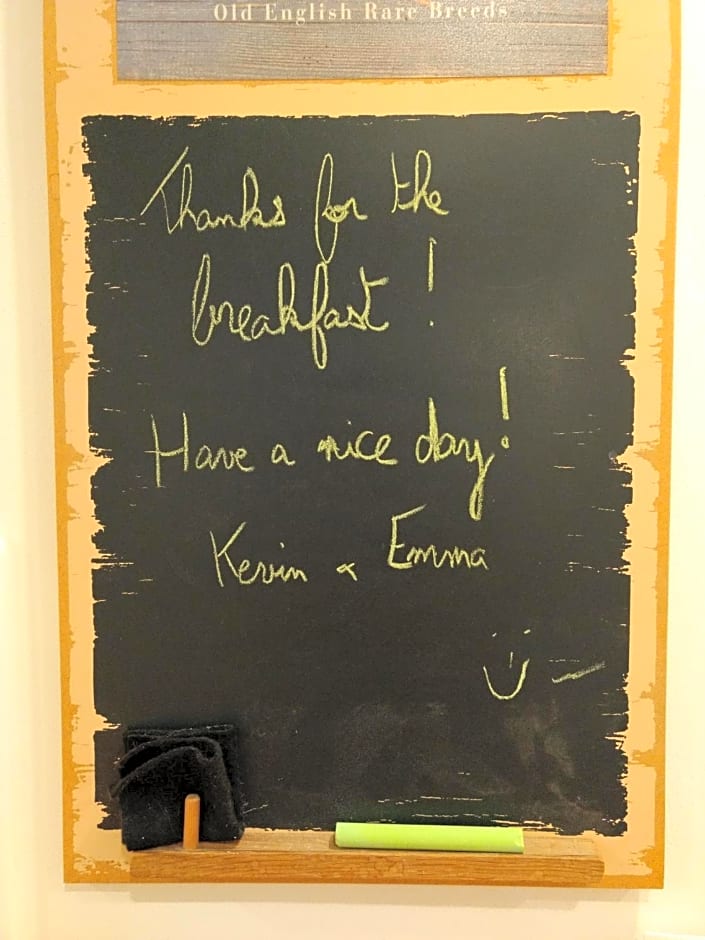 Old English Rare Breeds
Thanks for the
breakfast !
Have a nice day!
Kevin & Emma